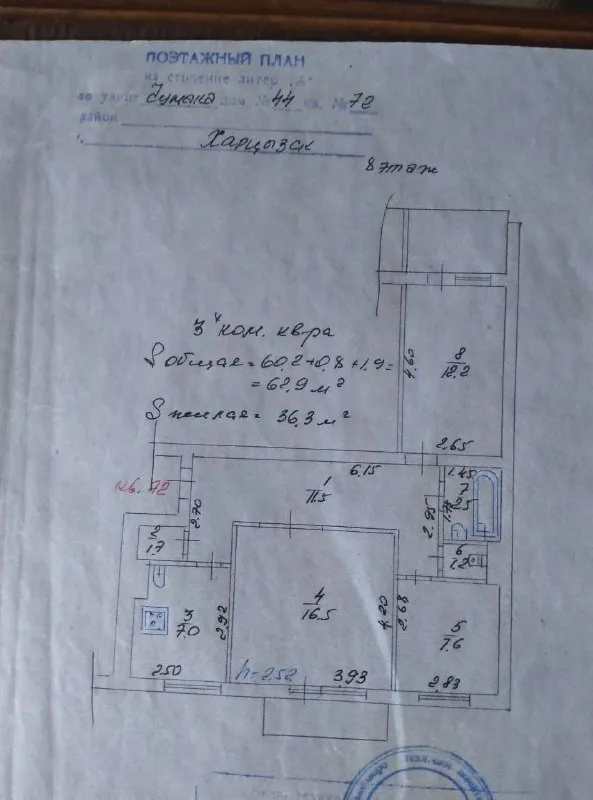 ПОЭТАЖНЫЙ ПЛАН
на строение литер „А"
по улице Чумака дом № 44 кв. № 72
район
г. Харцызск
8 этаж
3х ком. кв-ра
S общая = 60,2+0,8+1,9=
= 62,9 м²
S жилая = 36,3 м²
кв. 72
8
12.2
4.60
2.65
6.15
1
11.5
2.70
2.95
1.45
7
2.5
1.74
6
1.2
2
1.7
3
7.0
2.92
2.50
4
16.5
4.20
3.93
h=2.52
2.68
5
7.6
2.83